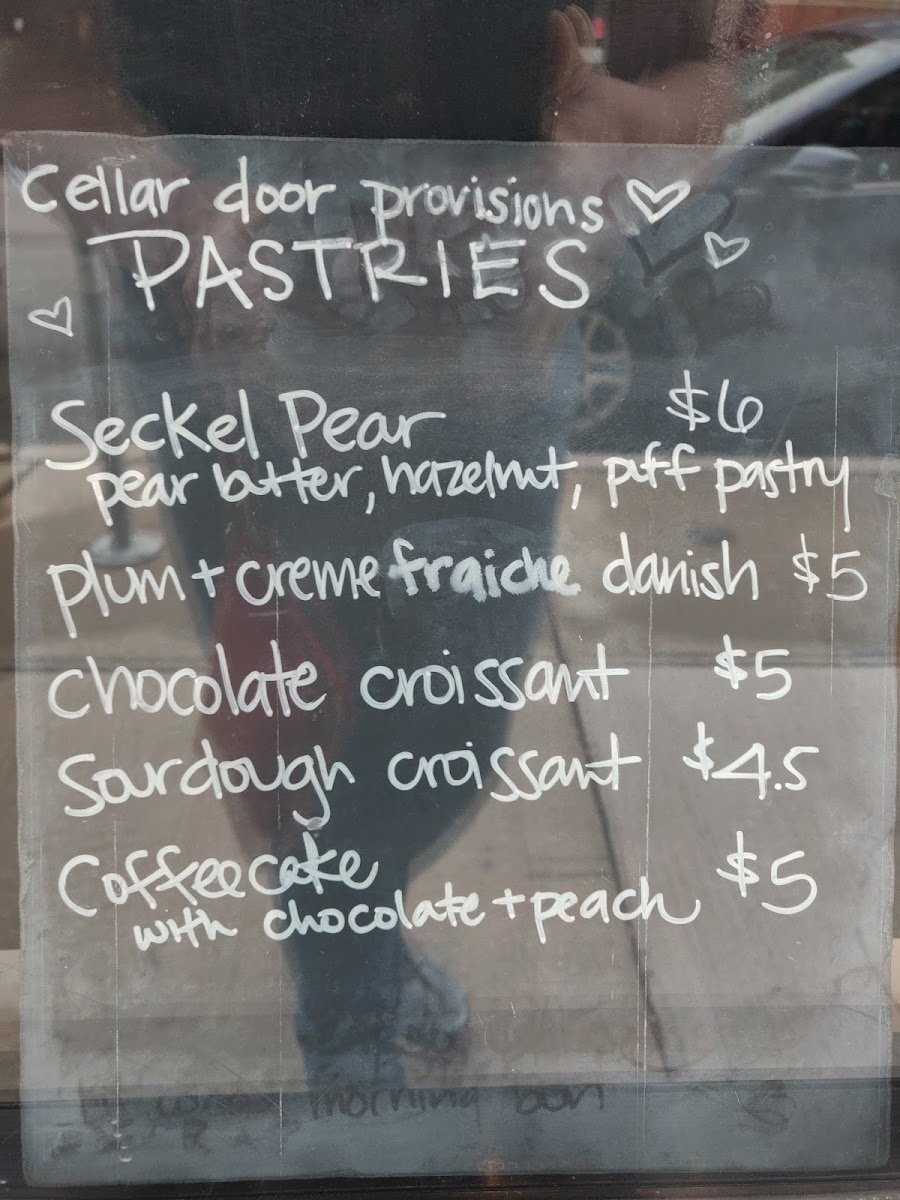 Cellar door provisions
PASTRIES
Seckel Pear $6
pear butter, hazelnut, puff pastry
plum + creme fraiche danish $5
chocolate croissant $5
Sourdough croissant $4.5
Coffeecake $5
with chocolate + peach
morning bun